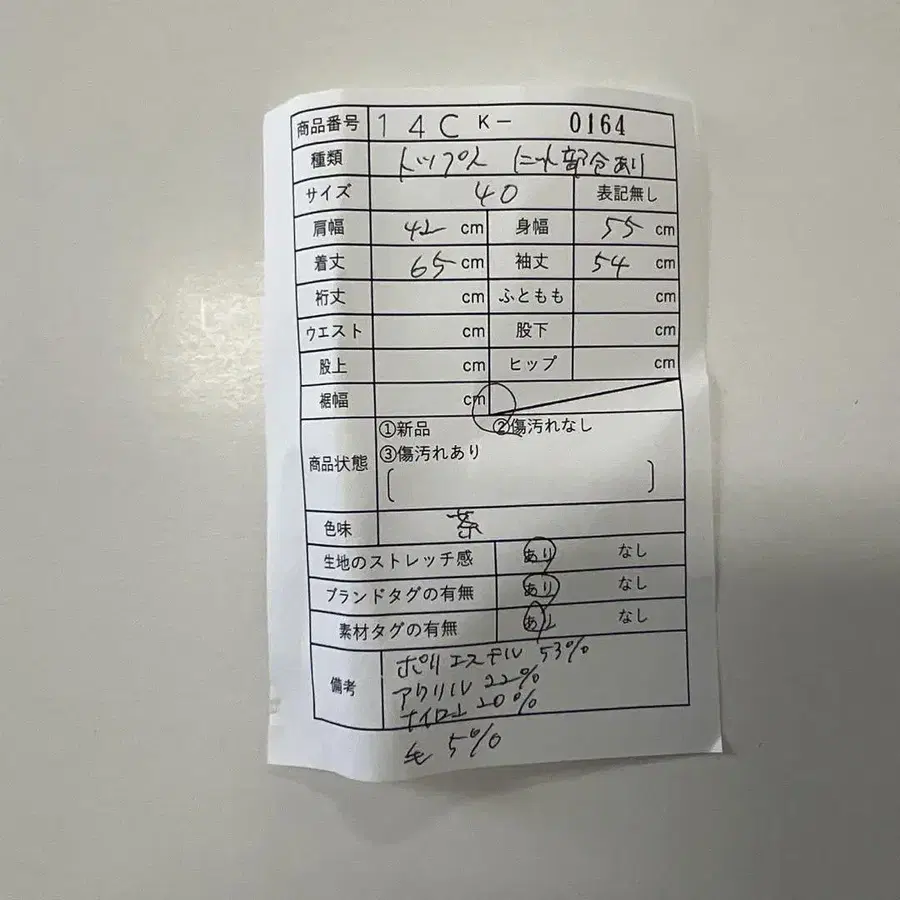 商品番号 14C K- 0164
種類 トップス ニット部分あり
サイズ 40 表記無し
肩幅 42 cm 身幅 55 cm
着丈 65 cm 袖丈 54 cm
裄丈 cm ふともも cm
ウエスト cm 股下 cm
股上 cm ヒップ cm
裾幅 cm
①新品 ②傷汚れなし
商品状態 ③傷汚れあり
色味 茶
生地のストレッチ感 あり なし
ブランドタグの有無 あり なし
素材タグの有無 あり なし
備考 ポリエステル 53%
アクリル 22%
ナイロン 20%
毛 5%